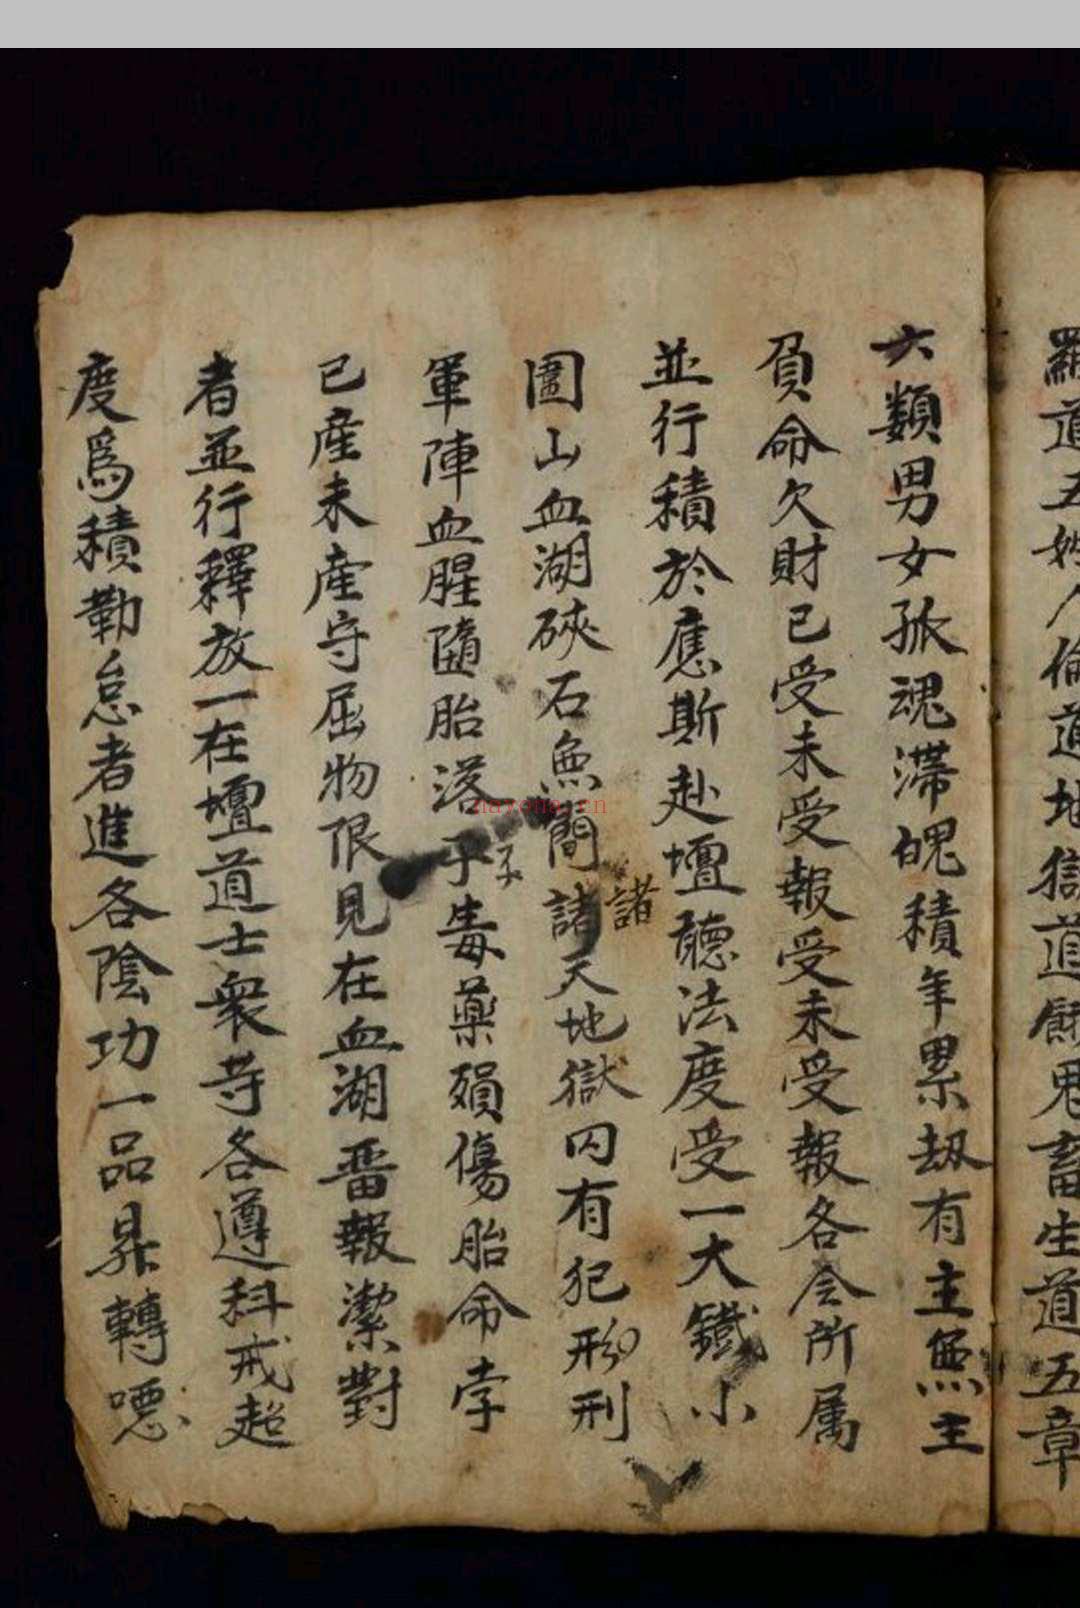 羅道五姓人倫道地獄道餓鬼畜生道五章
六類男女孤魂滯魄積年累劫有主無主
負命欠財已受未受報受未受報各令所属
並行積於應斯赴壇聽法度受一大鐵小
圍山血湖硤石無間諸天地獄囚有犯形刑
諸
軍陣血腥隨胎落子毒藥殞傷胎命孛
孑
已産未産守屈物限見在血湖畨報潔對
者並行釋放一在壇道士衆寺各遵科戒超
度爲積勤怠者進各陰功一品昇轉
nayona.cn